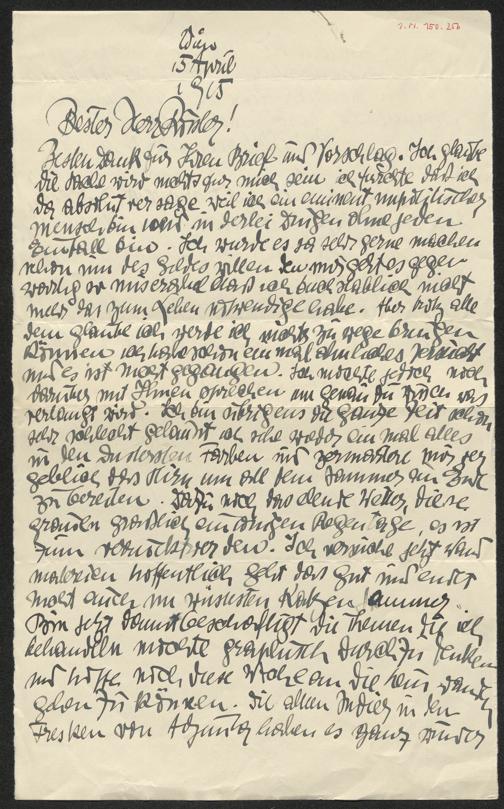 I.N. 150.250
Wien
15 April
1915
Bester Herr Rösler!
Besten Dank für Ihren Brief und Vorschlag. Ich glaube
die Sache wird nichts für mich sein ich fürchte daß ich
da absolut versage weil ich ein eminent unpolitischer
Mensch bin und in derlei Dingen ohne jeden
Einfall bin. Ich würde es ja sehr gerne machen
schon um des Geldes willen den mir geht es gegen
wärtig so miserabel daß ich buchstäblich nicht
mehr das zum Leben notwendige habe. Aber trotz alle
dem glaube ich werde ich nichts zu wege bringen
können ich habe schon einmal ähnliches versucht
und es ist nicht gegangen. Ich möchte jedoch noch
darüber mit Ihnen sprechen um genau zu wissen was
verlangt wird. Ich bin übrigens die ganze Zeit schon
sehr schlecht gelaunt ich sehe wieder einmal alles
in den düstersten Farben und zermartere mir ver
geblich das Hirn um all dem Jammer ein Ende
zu bereiten. Dazu noch das elende Wetter, diese
grauen gräßlich eintönigen Regentage, es ist
zum verrückt werden. Ich versuche jetzt Wand
malereien hoffentlich geht das gut und endet
nicht auch im wüsten Katzenjammer.
Bin jetzt damit beschäftigt die Themen die ich
behandeln möchte graphisch durchzudenken
und hoffe noch diese Woche an die
gehen zu können. Die alten Inder in den
Fresken von haben es ganz